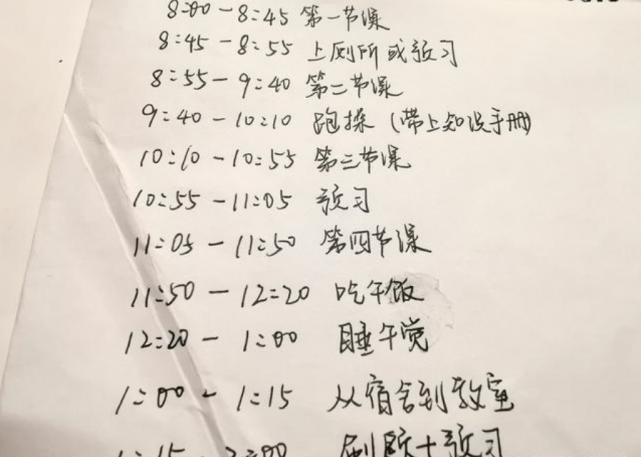 8:00-8:45 第一节课
8:45-8:55 上厕所或预习
8:55-9:40 第二节课
9:40-10:10 跑操(带上知识手册)
10:10-10:55 第三节课
10:55-11:05 预习
11:05-11:50 第四节课
11:50-12:20 吃午饭
12:20-1:00 睡午觉
1:00-1:15 从宿舍到教室
1:15 刷题+预习